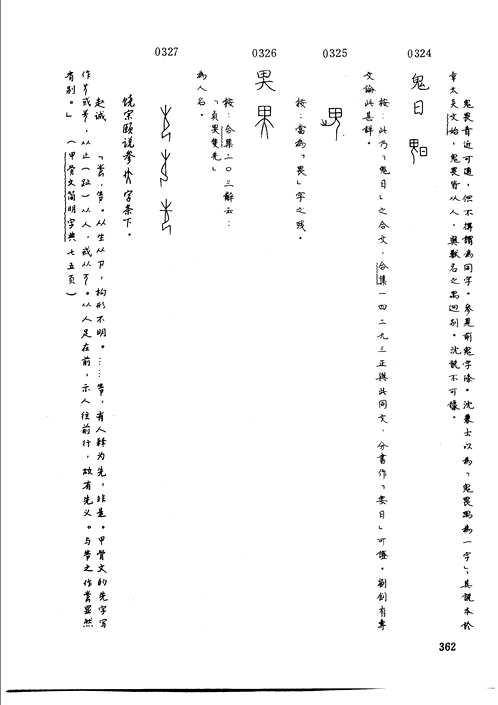 鬼畏音近可通，但不得謂為同字。參見前鬼字條。沈兼士以為「鬼畏禺為一字」，其說本於
章太炎文始，鬼畏皆从人，與獸名之禺迥別。沈說不可據。
0324
鬼日
按：此乃「鬼日」之合文，合集一四二九三正與此同文，分書作「㚻日」可證。劉釗有專
文論此甚詳。
0325
按：當為「畏」字之殘。
0326
畏
按：合集二〇三辭云：
「貞畏隻羌」
為人名。
0327
饒宗頤說參 字条下。
赵诚 「 ， 。从生从卩，构形不明。…… ，有人释为先，非是。甲骨文的先字写
作 或 ，从止（趾）从人，或从 。从人足在前，示人往前行，故有先义。与 之作 显然
有别。」 （甲骨文简明字典七五頁）
362